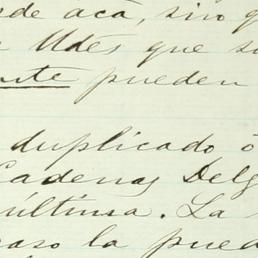 de acá, sin q
Udes que s
nte pueden
duplicado ó
Cadenas Delg
última. La
caso la pued